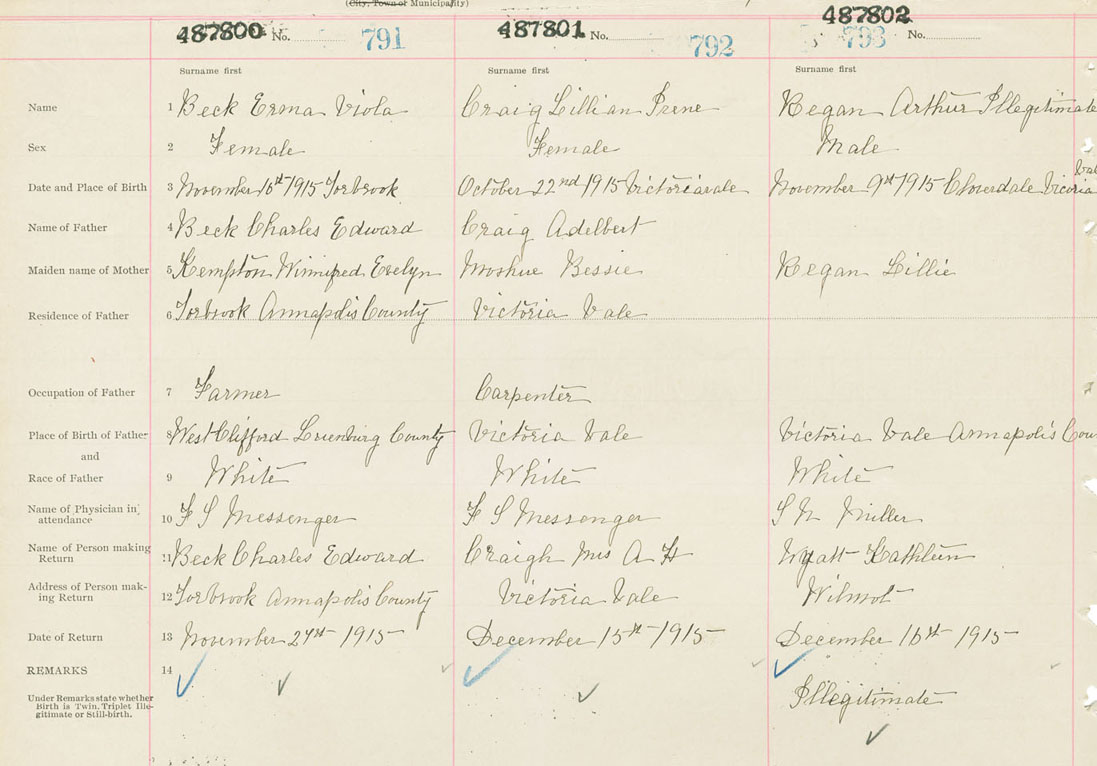 (City, Town or Municipality)
487800 No. 791 487801 No. 792 487802 793 No.
Surname first Surname first Surname first
Name 1 Beck Erma Viola Craig Lillian Irene Kegan Arthur Illegitimate
Sex 2 Female Female Male
Date and Place of Birth 3 November 16th 1915 Torbrook October 22nd 1915 Victoriavale November 9st 1915 Cloverdale Vicoria Val
Name of Father 4 Beck Charles Edward Craig Adelbert
Maiden name of Mother 5 Kempton Winnifred Evelyn Moshue Bessie Kegan Lillie
Residence of Father 6 Torbrook Annapolis County Victoria Vale
Occupation of Father 7 Farmer Carpenter
Place of Birth of Father 8 West Clifford Lunenburg County Victoria Vale Victoria Vale Annapolis Cou
and
Race of Father 9 White White White
Name of Physician in attendance 10 F S Messenger F S Messenger S N Miller
Name of Person making Return 11 Beck Charles Edward Craigh Mrs A H Wyatt Kathleen
Address of Person making Return 12 Torbrook Annapolis County Victoria Vale Wilmot
Date of Return 13 November 27st 1915 December 15st 1915 December 16st 1915
REMARKS 14
Under Remarks state whether
Birth is Twin, Triplet Ille-
gitimate or Still-birth.
Illegitimate